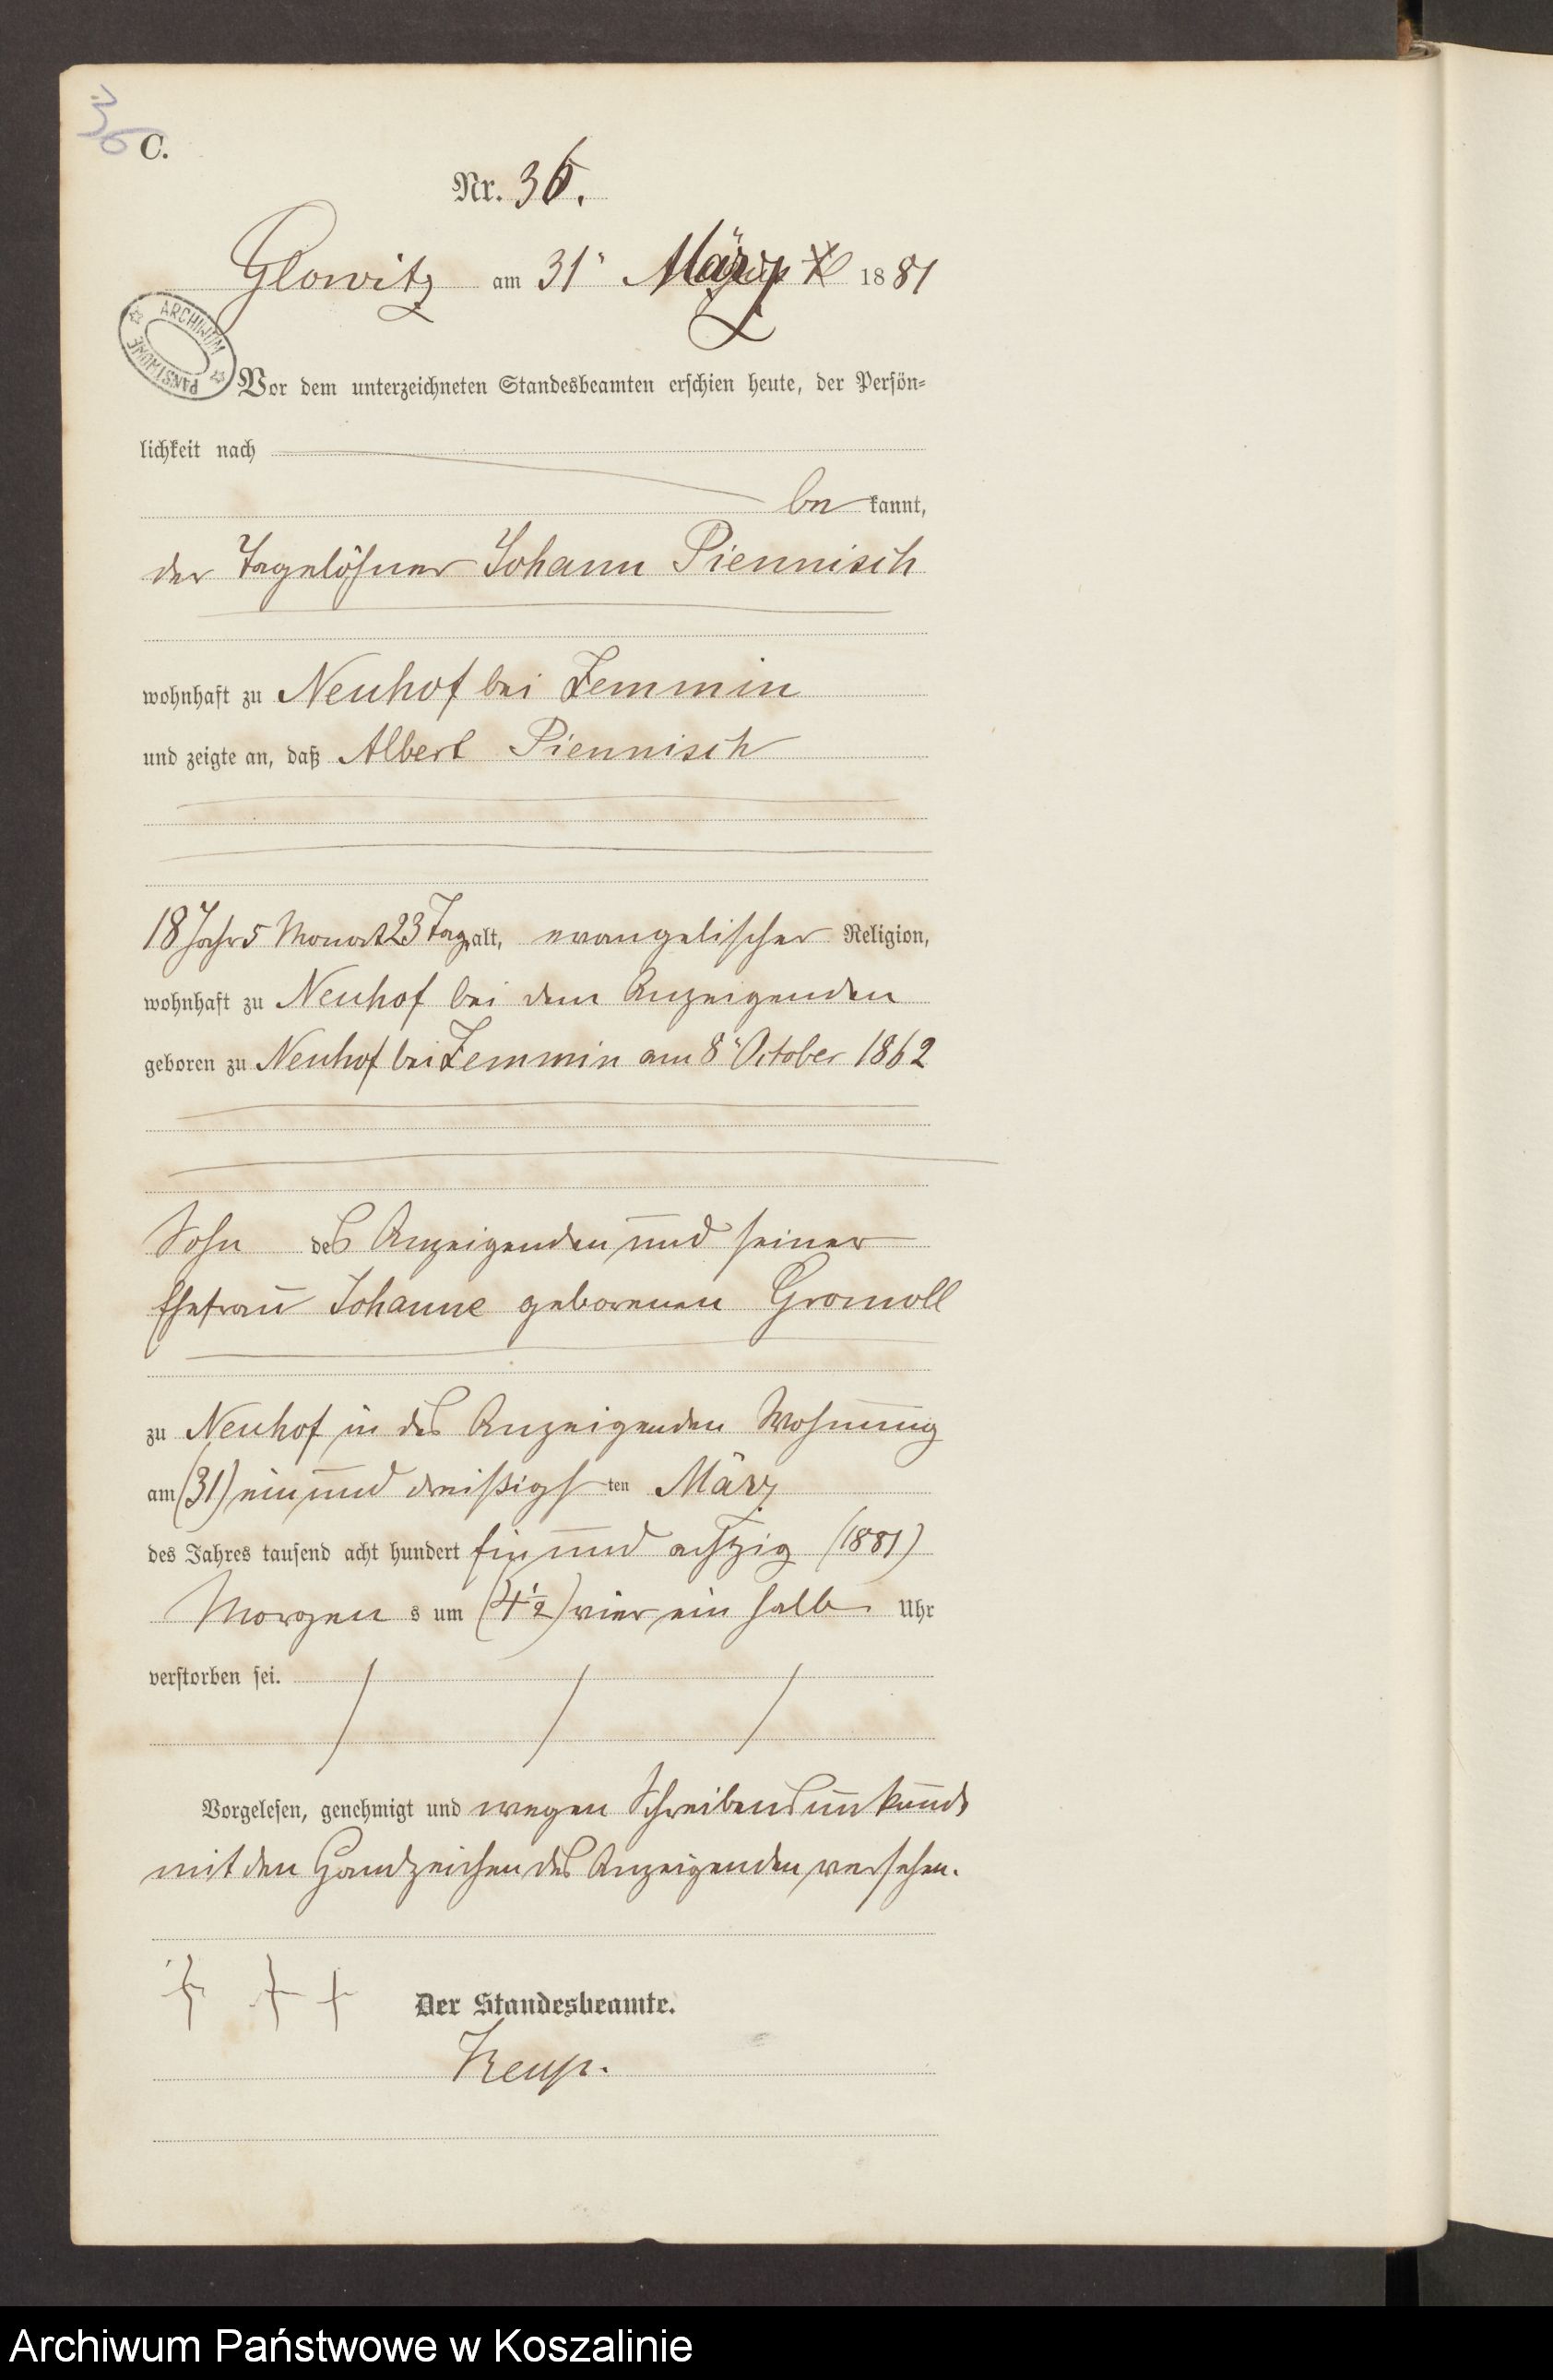 36
C.
Nr. 36.
Glowitz am 31" März 1881
ARCHIWUM PAŃSTWOWE
Vor dem unterzeichneten Standesbeamten erschien heute, der Persön=
lichkeit nach
be kannt,
der Tagelöhner Johann Piennisch
wohnhaft zu Neuhof bei Zemmin
und zeigte an, daß Albert Piennisch
18 Jahr 5 Monat 23 Tag alt, evangelischer Religion,
wohnhaft zu Neuhof bei dem Anzeigenden
geboren zu Neuhof bei Zemmin am 8" October 1862
Sohn des Anzeigenden und seiner
Ehefrau Johanne geborenen Gromoll
zu Neuhof in des Anzeigenden Wohnung
am (31) ein und dreißigsten März
des Jahres tausend acht hundert Ein und achtzig (1881)
Morgens um (4½) vier ein halb Uhr
verstorben sei.
Vorgelesen, genehmigt und wegen Schreibensunkunde
mit den Handzeichen des Anzeigenden versehen.
+ + +
Der Standesbeamte.
Archiwum Państwowe w Koszalinie